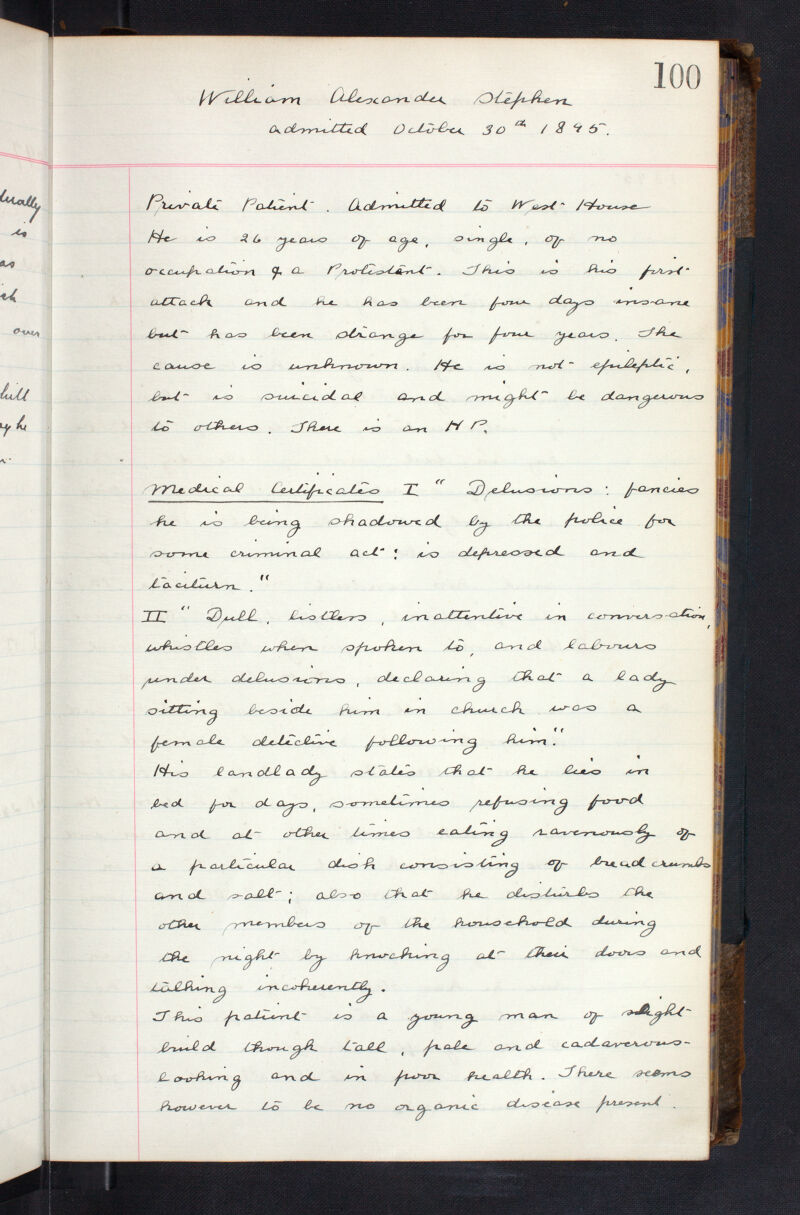 100
William Alexander Stephen
admitted October 30th 1895.
Private Patient. Admitted to West House
He is 26 years of age, single, of no
occupation & a Protestant. This is his first
attack and he has been four days insane
but has been strange for four years. The
cause is unknown. He is not epileptic,
but is suicidal and might be dangerous
to others. There is an H P.
Medical Certificates I " Delusions: fancies
he is being shadowed by the police for
some criminal act: is depressed and
taciturn."
II " Dull, listless, inattentive in conversation,
whistles when spoken to, and labours
under delusions, declaring that a lady
sitting beside him in church was a
female detective following him."
His landlady states that he lies in
bed for days, sometimes refusing food
and at other times eating ravenously of
a particular dish consisting of bread crumbs
and salt; also that he disturbs the
other members of the household during
the night by knocking at their doors and
talking incoherently.
This patient is a young man of slight
build though tall, pale and cadaverous-
looking and in poor health. There seems
however to be no organic disease present.
is
over